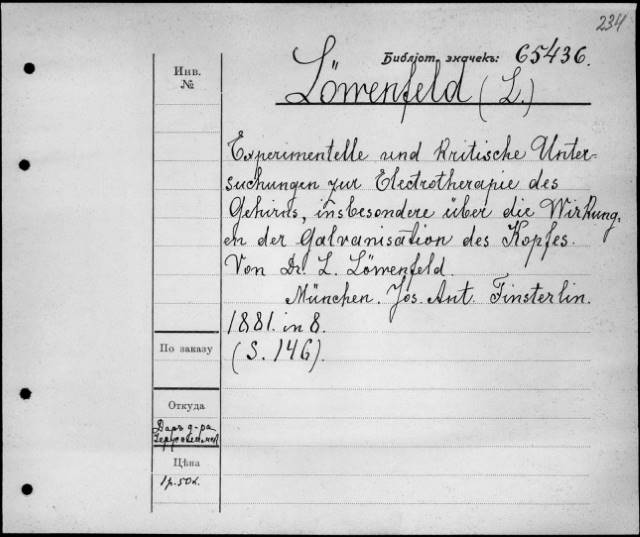 234
Библіот. значекъ: 65436.
Инв.
№
Löwenfeld (L.)
Experimentelle und kritische Unter-
suchungen zur Electrotherapie des
Gehirns, insbesondere über die Wirkung,
en der Galvanisation des Kopfes.
Von Dr. L. Löwenfeld.
München. Jos. Ant. Finsterlin.
1881. in 8.
По заказу
(S. 146).
Откуда
Даръ д-ра
Цѣна
1 р. 50 к.